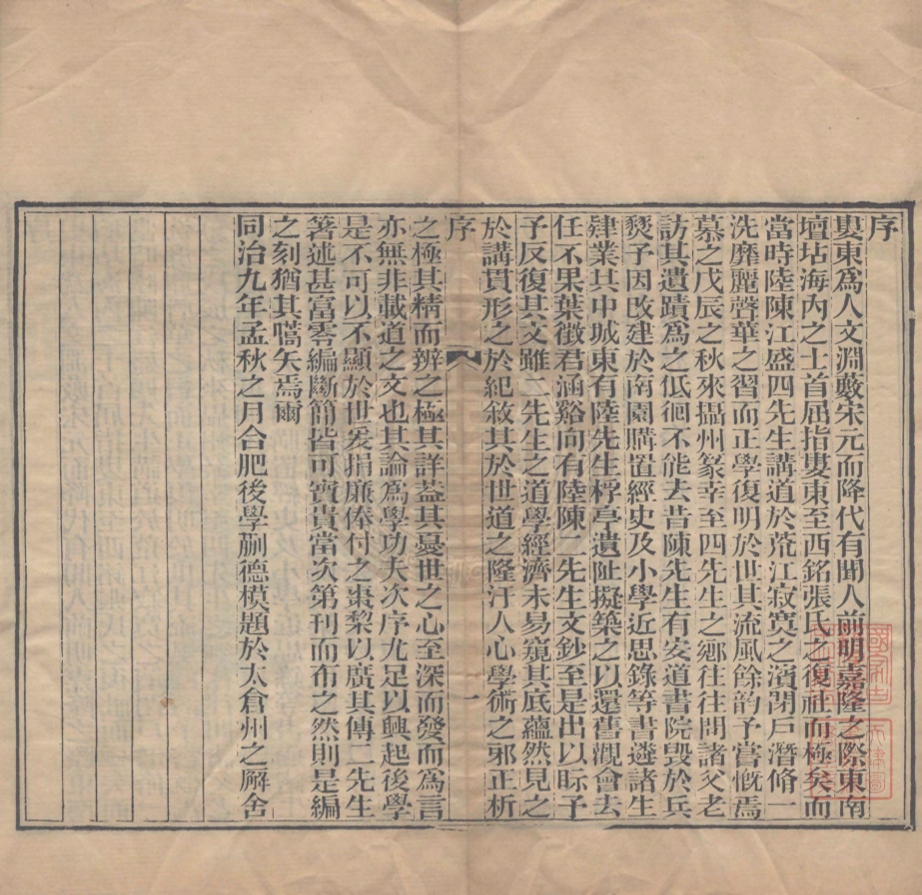 序
婁東爲人文淵藪宋元而降代有聞人前明嘉隆之際東南
壇坫海內之士首屈指婁東至西銘張氏之復社而極矣而
當時陸陳江盛四先生講道於荒江寂寞之濱閉戶潛脩一
洗靡麗聲華之習而正學復明於世其流風餘韵予嘗慨焉
慕之戊辰之秋來攝州篆幸至四先生之鄉往往問諸父老
訪其遺蹟爲之低徊不能去昔陳先生有安道書院毀於兵
燹予因改建於南園購置經史及小學近思錄等書遴諸生
肄業其中城東有陸先生桴亭遺阯擬築之以還舊觀會去
任不果葉徵君涵谿向有陸陳二先生文鈔至是出以眎予
予反復其文雖二先生之道學經濟未易窺其底蘊然見之
於講貫形之於紀敘其於世道之隆汙人心學術之邪正析
序 一
之極其精而辨之極其詳葢其憂世之心至深而發而爲言
亦無非載道之文也其論爲學功夫次序尤足以興起後學
是不可以不顯於世爰捐廉俸付之棗棃以廣其傳二先生
箸述甚富零編斷簡皆可寶貴當次第刊而布之然則是編
之刻猶其嚆矢焉爾
同治九年孟秋之月合肥後學蒯德模題於太倉州之廨舍